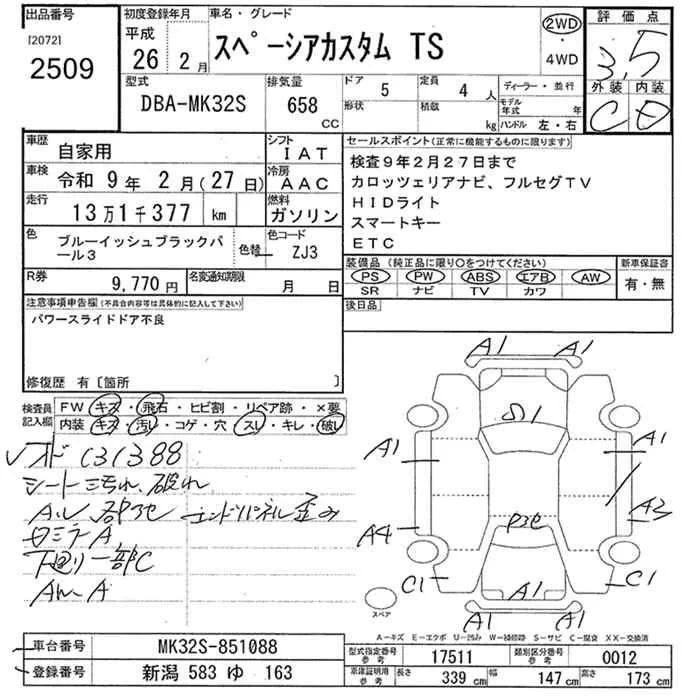 出品番号
[2072]
2509
初度登録年月
平成
26 2 月
車名・グレード
スペーシアカスタム TS
2WD
・
4WD
評価点
3.5
外装 内装
C D
型式
DBA-MK32S
排気量
658 CC
ドア 5
形状
定員 4 人
積載 kg
ディーラー・並行
モデル年式 年
ハンドル 左・右
車歴 自家用
シフト IAT
車検 令和 9 年 2 月(27日)
冷房 AAC
走行 13万1千377 km
燃料 ガソリン
色 ブルーイッシュブラックパール3
色替
色コード ZJ3
R券 9,770 円
名変通知期限 月 日
セールスポイント(正常に機能するものに限ります)
検査9年2月27日まで
カロッツェリアナビ、フルセグTV
HIDライト
スマートキー
ETC
装備品 (純正品に限り○をつけてください)
PS PW ABS エアB AW
SR ナビ TV カワ
新車保証書
有・無
後日品
注意事項申告欄(不具合内容等は具体的に記入して下さい)
パワースライドドア不良
修復歴 有〔箇所 〕
検査員記入欄
FW キズ・飛石・ヒビ割・リペア跡・×要
内装 キズ・汚れ・コゲ・穴・スレ・キレ・破れ
131388
シート汚れ、破れ
エンドパネル歪み
ロミラーA
下廻り一部C
A1 A1
S1
A1 A1
P3e
A4 A3
C1 C1
A1
A1 A1
スペア
A－キズ E－エクボ U－凹み W－補修跡 S－サビ C－腐食 XX－交換済
車台番号 MK32S-851088
登録番号 新潟 583 ゆ 163
型式指定番号 参考 17511
類別区分番号 参考 0012
車庫証明用 参考
長さ 339 cm
幅 147 cm
高さ 173 cm